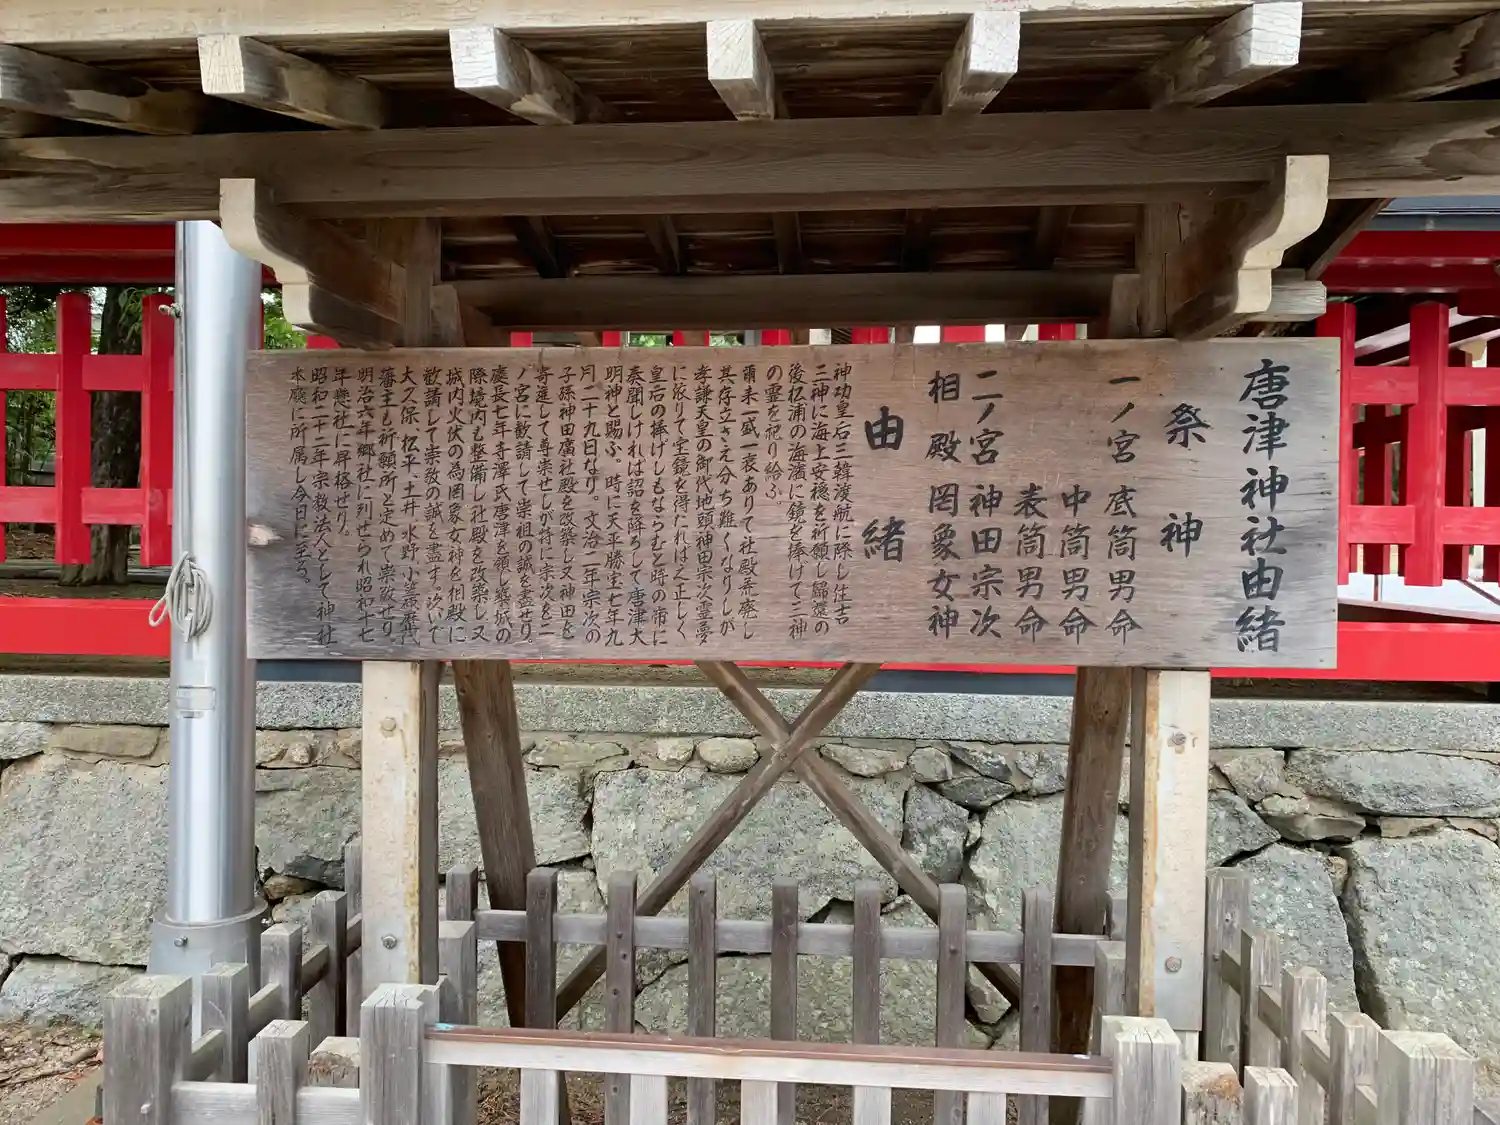 唐津神社由緒
祭神
一ノ宮 底筒男命
中筒男命
表筒男命
二ノ宮 神田宗次
相殿 罔象女神
由緒
神功皇后三韓渡航に際し住吉
三神に海上安穏を祈願し帰還の
後松浦の海濱に鏡を捧げて三神
の霊を祀り給ふ。
爾来一盛一衰ありて社殿荒廃し
其存立さえ分ち難くなりしが
孝謙天皇の御代地頭神田宗次霊夢
に依りて宝鏡を得たればこ正しく
皇后の捧げしものならむと時の帝に
奏聞しければ詔を降ろして唐津大
明神と賜ふ。時に天平勝宝七年九
月二十九日なり。文治二年宗次の
子孫神田廣社殿を改築し又神田を
寄進して尊崇せしが特に宗次を二
ノ宮に歓請して崇祖の誠を盡せり。
慶長七年寺澤氏唐津を領し築城の
際境内も整備し社殿を改築し又
城内火伏の為罔象女神を相殿に
歓請して崇敬の誠を盡す。次いで
大久保、松平、土井、水野、小笠原歴代
藩主も祈願所と定めて崇敬せり
明治六年郷社に列せられ昭和十七
年懸社に昇格せり。
昭和二十二年宗教法人として神社
本廳に所属し今日に至る。